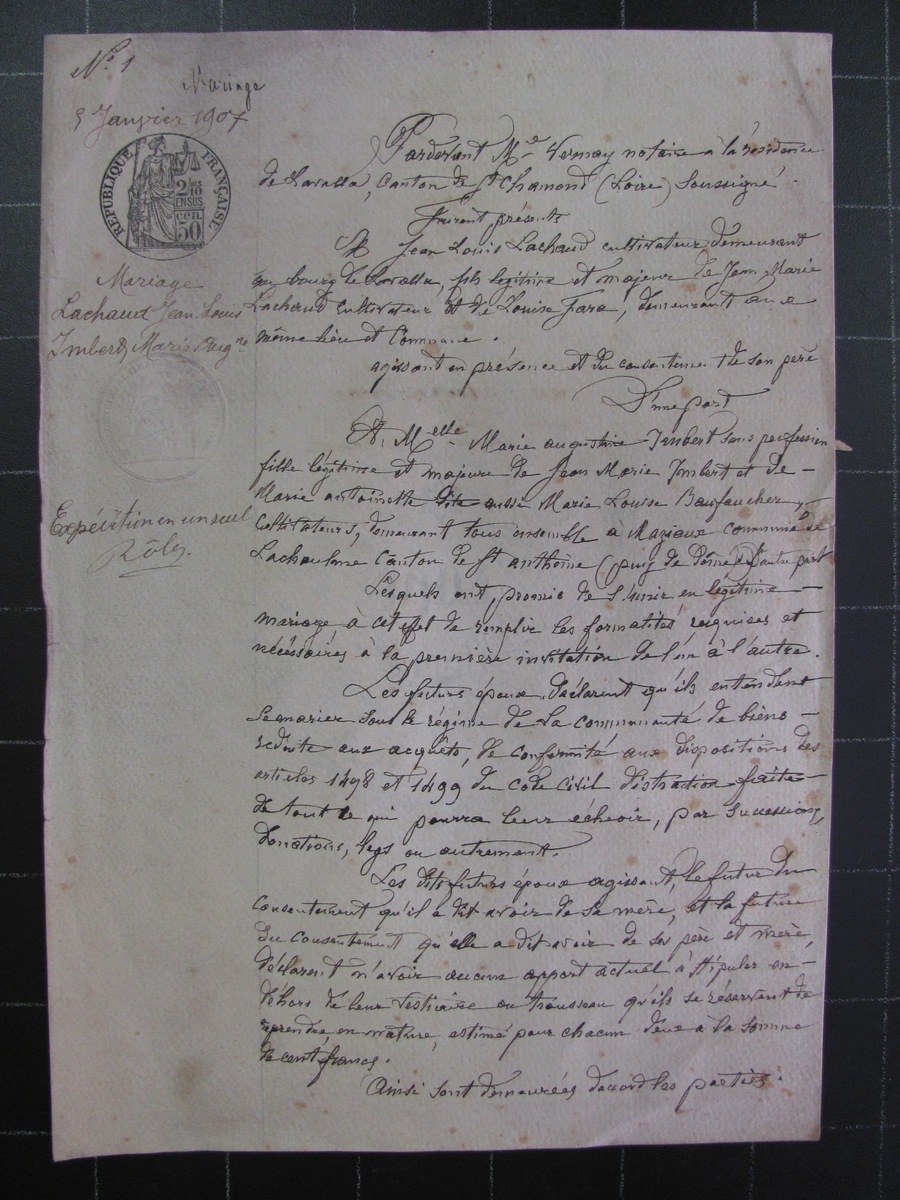 N° 1
Mariage
5 Janvier 1907
RÉPUBLIQUE FRANÇAISE
2/10 EN SUS
50 cen.
Mariage
Lachaud Jean Louis
Imbert, Marie Aug^ne
Expédition en un seul
Rôle.
Pardevant M^e Vernay notaire à la résidence
de Lavalla, Canton de S^t Chamond (Loire) Soussigné
Furent présents
M Jean Louis Lachaud cultivateur demeurant
au bourg de Lavalla, fils légitime et majeur de Jean Marie
Lachaud Cultivateur et de Louise Fara, demeurant aux
même lieu et Commune.
agissant en présence et du consentement de son père
D'une part
Et, M^elle Marie augustine Imbert sans profession
fille légitime et majeure de Jean Marie Imbert et de
Marie antoinette dite aussi Marie Louise
Cultivateurs, demeurant tous ensemble à Mazioux commune de
Lachaulme Canton de S^t anthème (puy de dôme) d'autre part
Lesquels ont, promis de S'unir en légitime
mariage à cet effet de remplir les formalités requises et
nécéssaires à la première invitation de l'un à l'autre.
Les futurs époux déclarent qu'ils entendent
Se marier Sous le régime de la communauté de biens
réduite aux acquêts, de conformité aux dispositions des
articles 1498 et 1499 du Code Civil distraction faite
de tout ce qui pourra leur échevir, par Successions,
donations, legs ou autrement.
Les dits futurs époux agissant, le futur du
Consentement qu'il a dit avoir de Sa mère, et la future
du Consentement qu'elle a dit avoir de ses père et mère,
déclarent n'avoir aucun apport actuel à Stipuler en
déhors de leur vestiaire ou trousseau qu'ils se réservent de
reprendre, en nature, estimé pour chacun d'eux à la Somme
de cent francs.
Ainsi sont demeurées d'accord les parties.